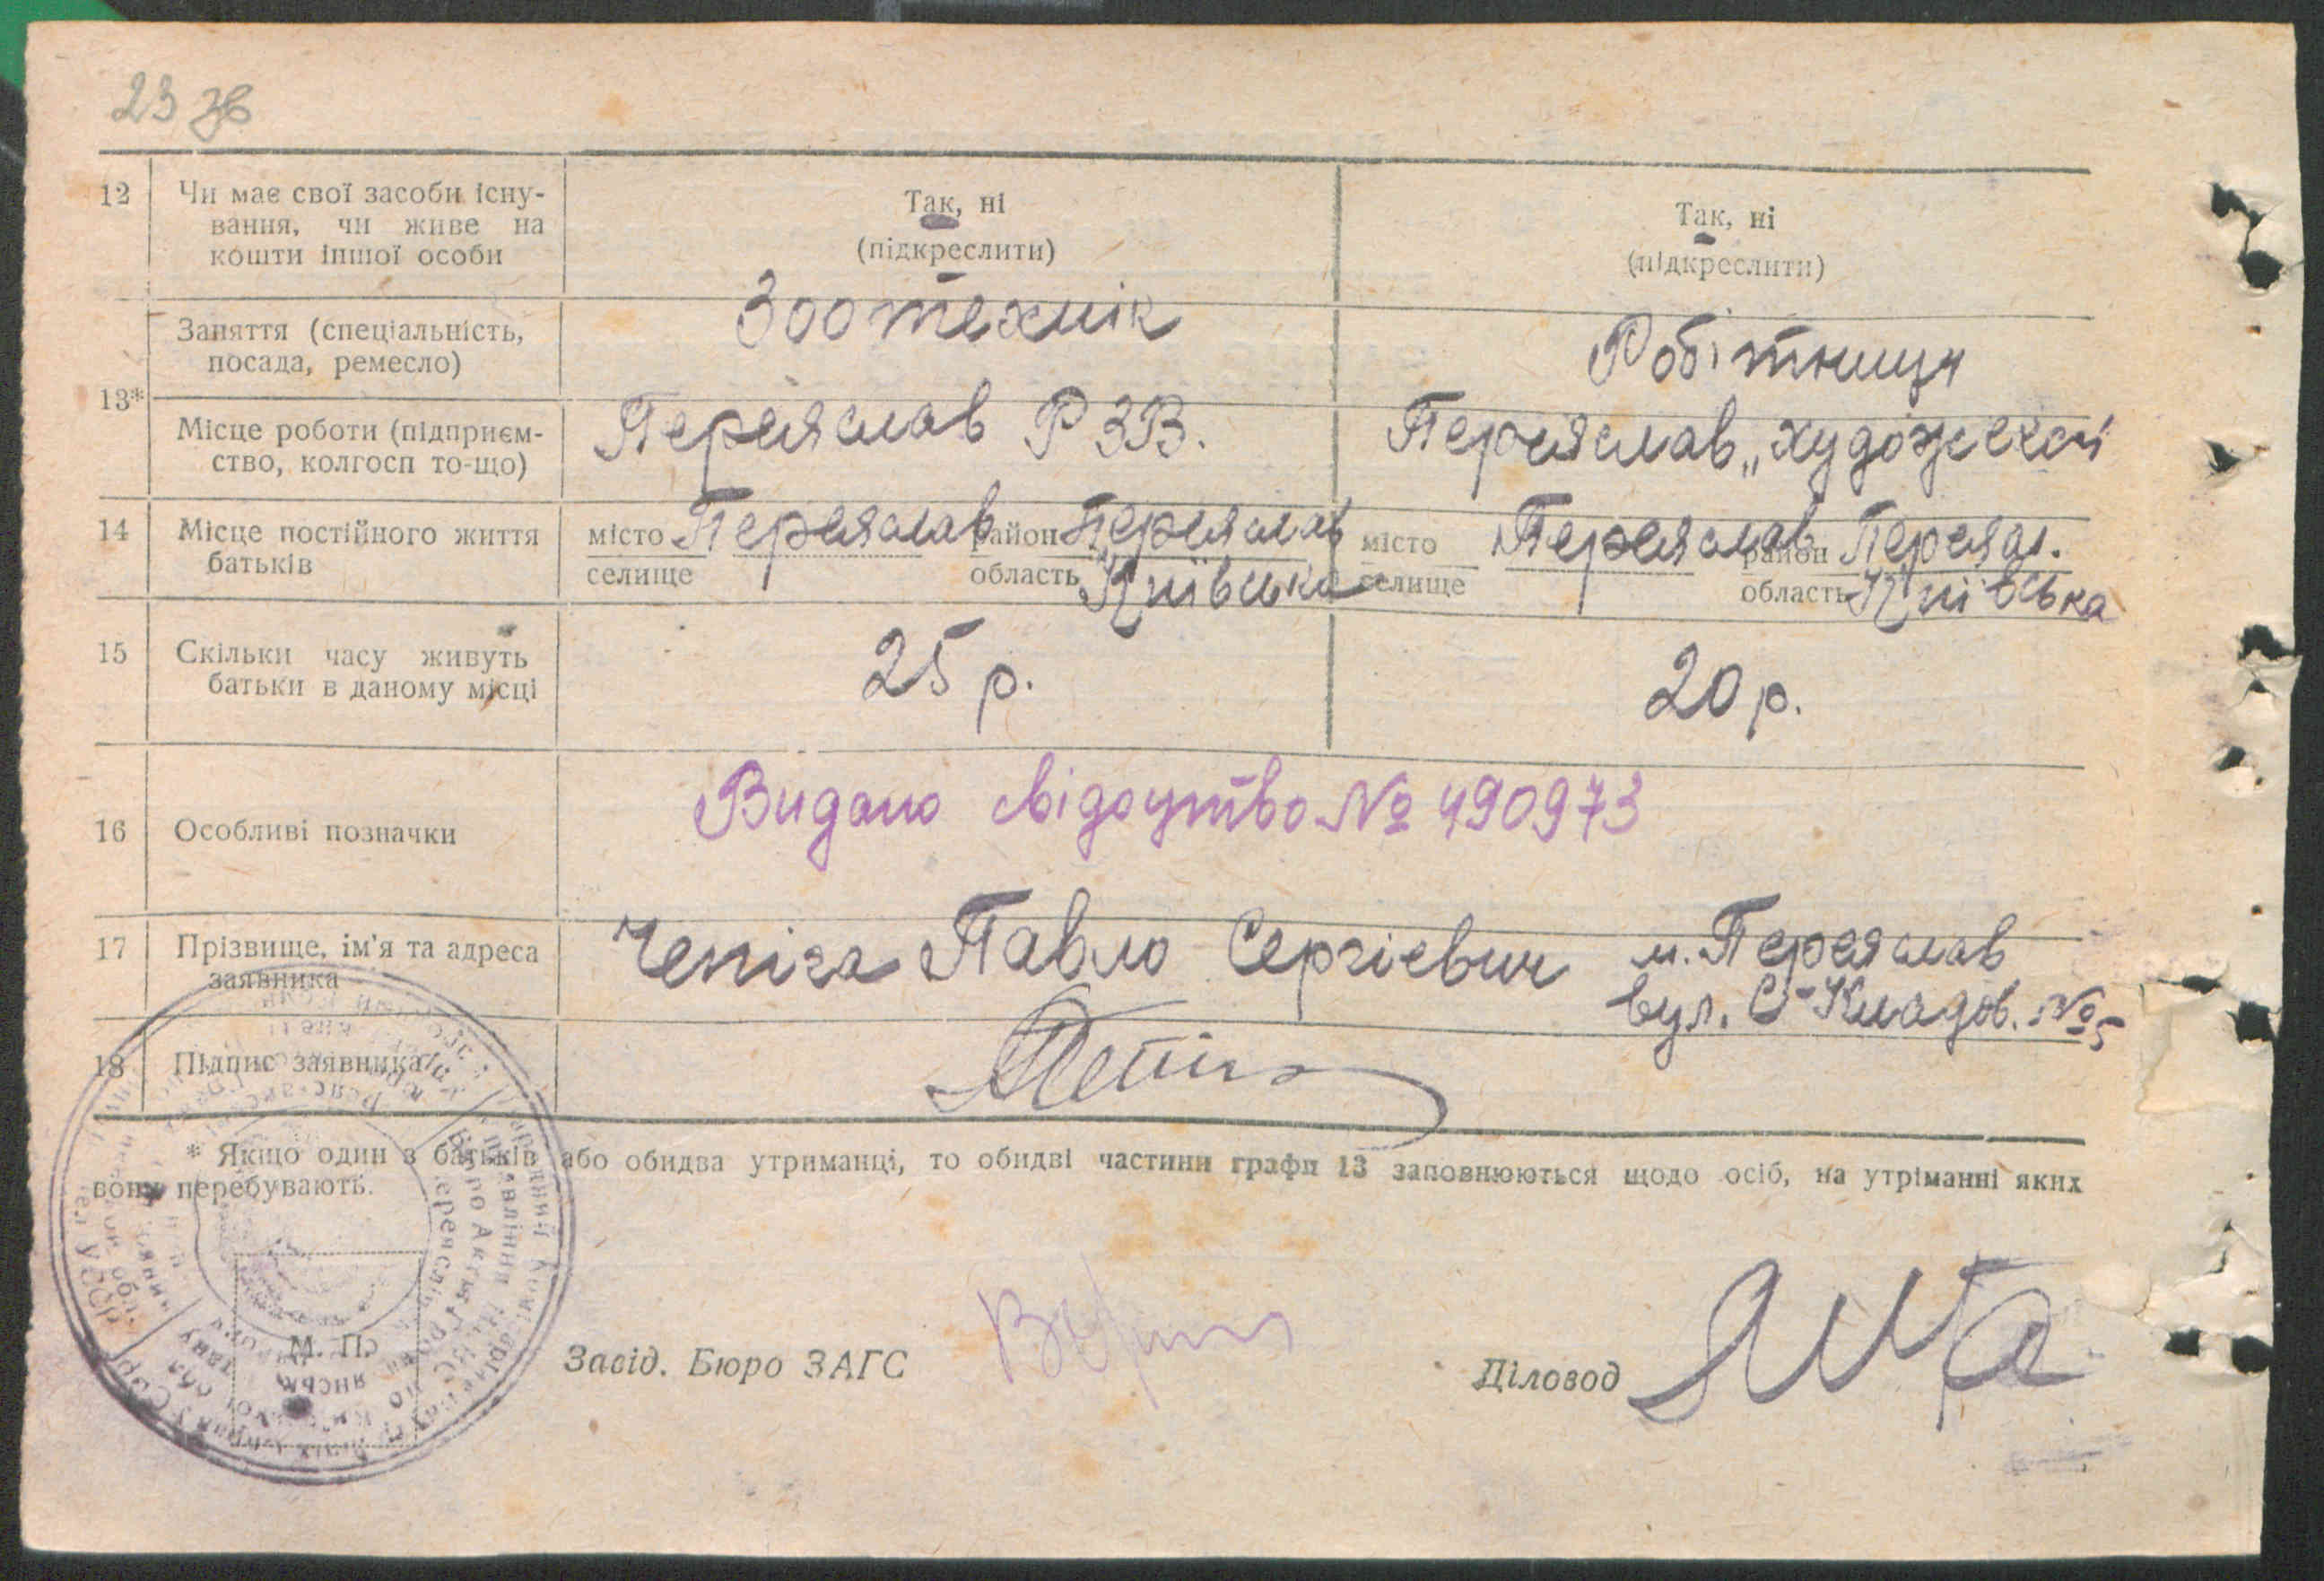 23 зв
12 Чи має свої засоби існу-
вання, чи живе на
кошти іншої особи
Так, ні
(підкреслити)
Так, ні
(підкреслити)
13*
Заняття (спеціальність,
посада, ремесло)
Зоотехнік
Робітниця
Місце роботи (підприєм-
ство, колгосп то-що)
Переяслав РЗВ.
Переяслав „художекс
14 Місце постійного життя
батьків
місто Переяслав район Переяслав
селище область Київська
місто Переяслав район Переясл.
селище область Київська
15 Скільки часу живуть
батьки в даному місці
25 р.
20 р.
16 Особливі позначки
Видано свідоцтво № 490973
17 Прізвище, ім'я та адреса
заявника
Чепіга Павло Сергієвич м. Переяслав
вул. С-Кладов. № 5
18 Підпис заявника
* Якщо один з батьків або обидва утриманці, то обидві частини графи 13 заповнюються щодо осіб, на утріманні яких
вони перебувають.
М. П.
Завід. Бюро ЗАГС
Діловод